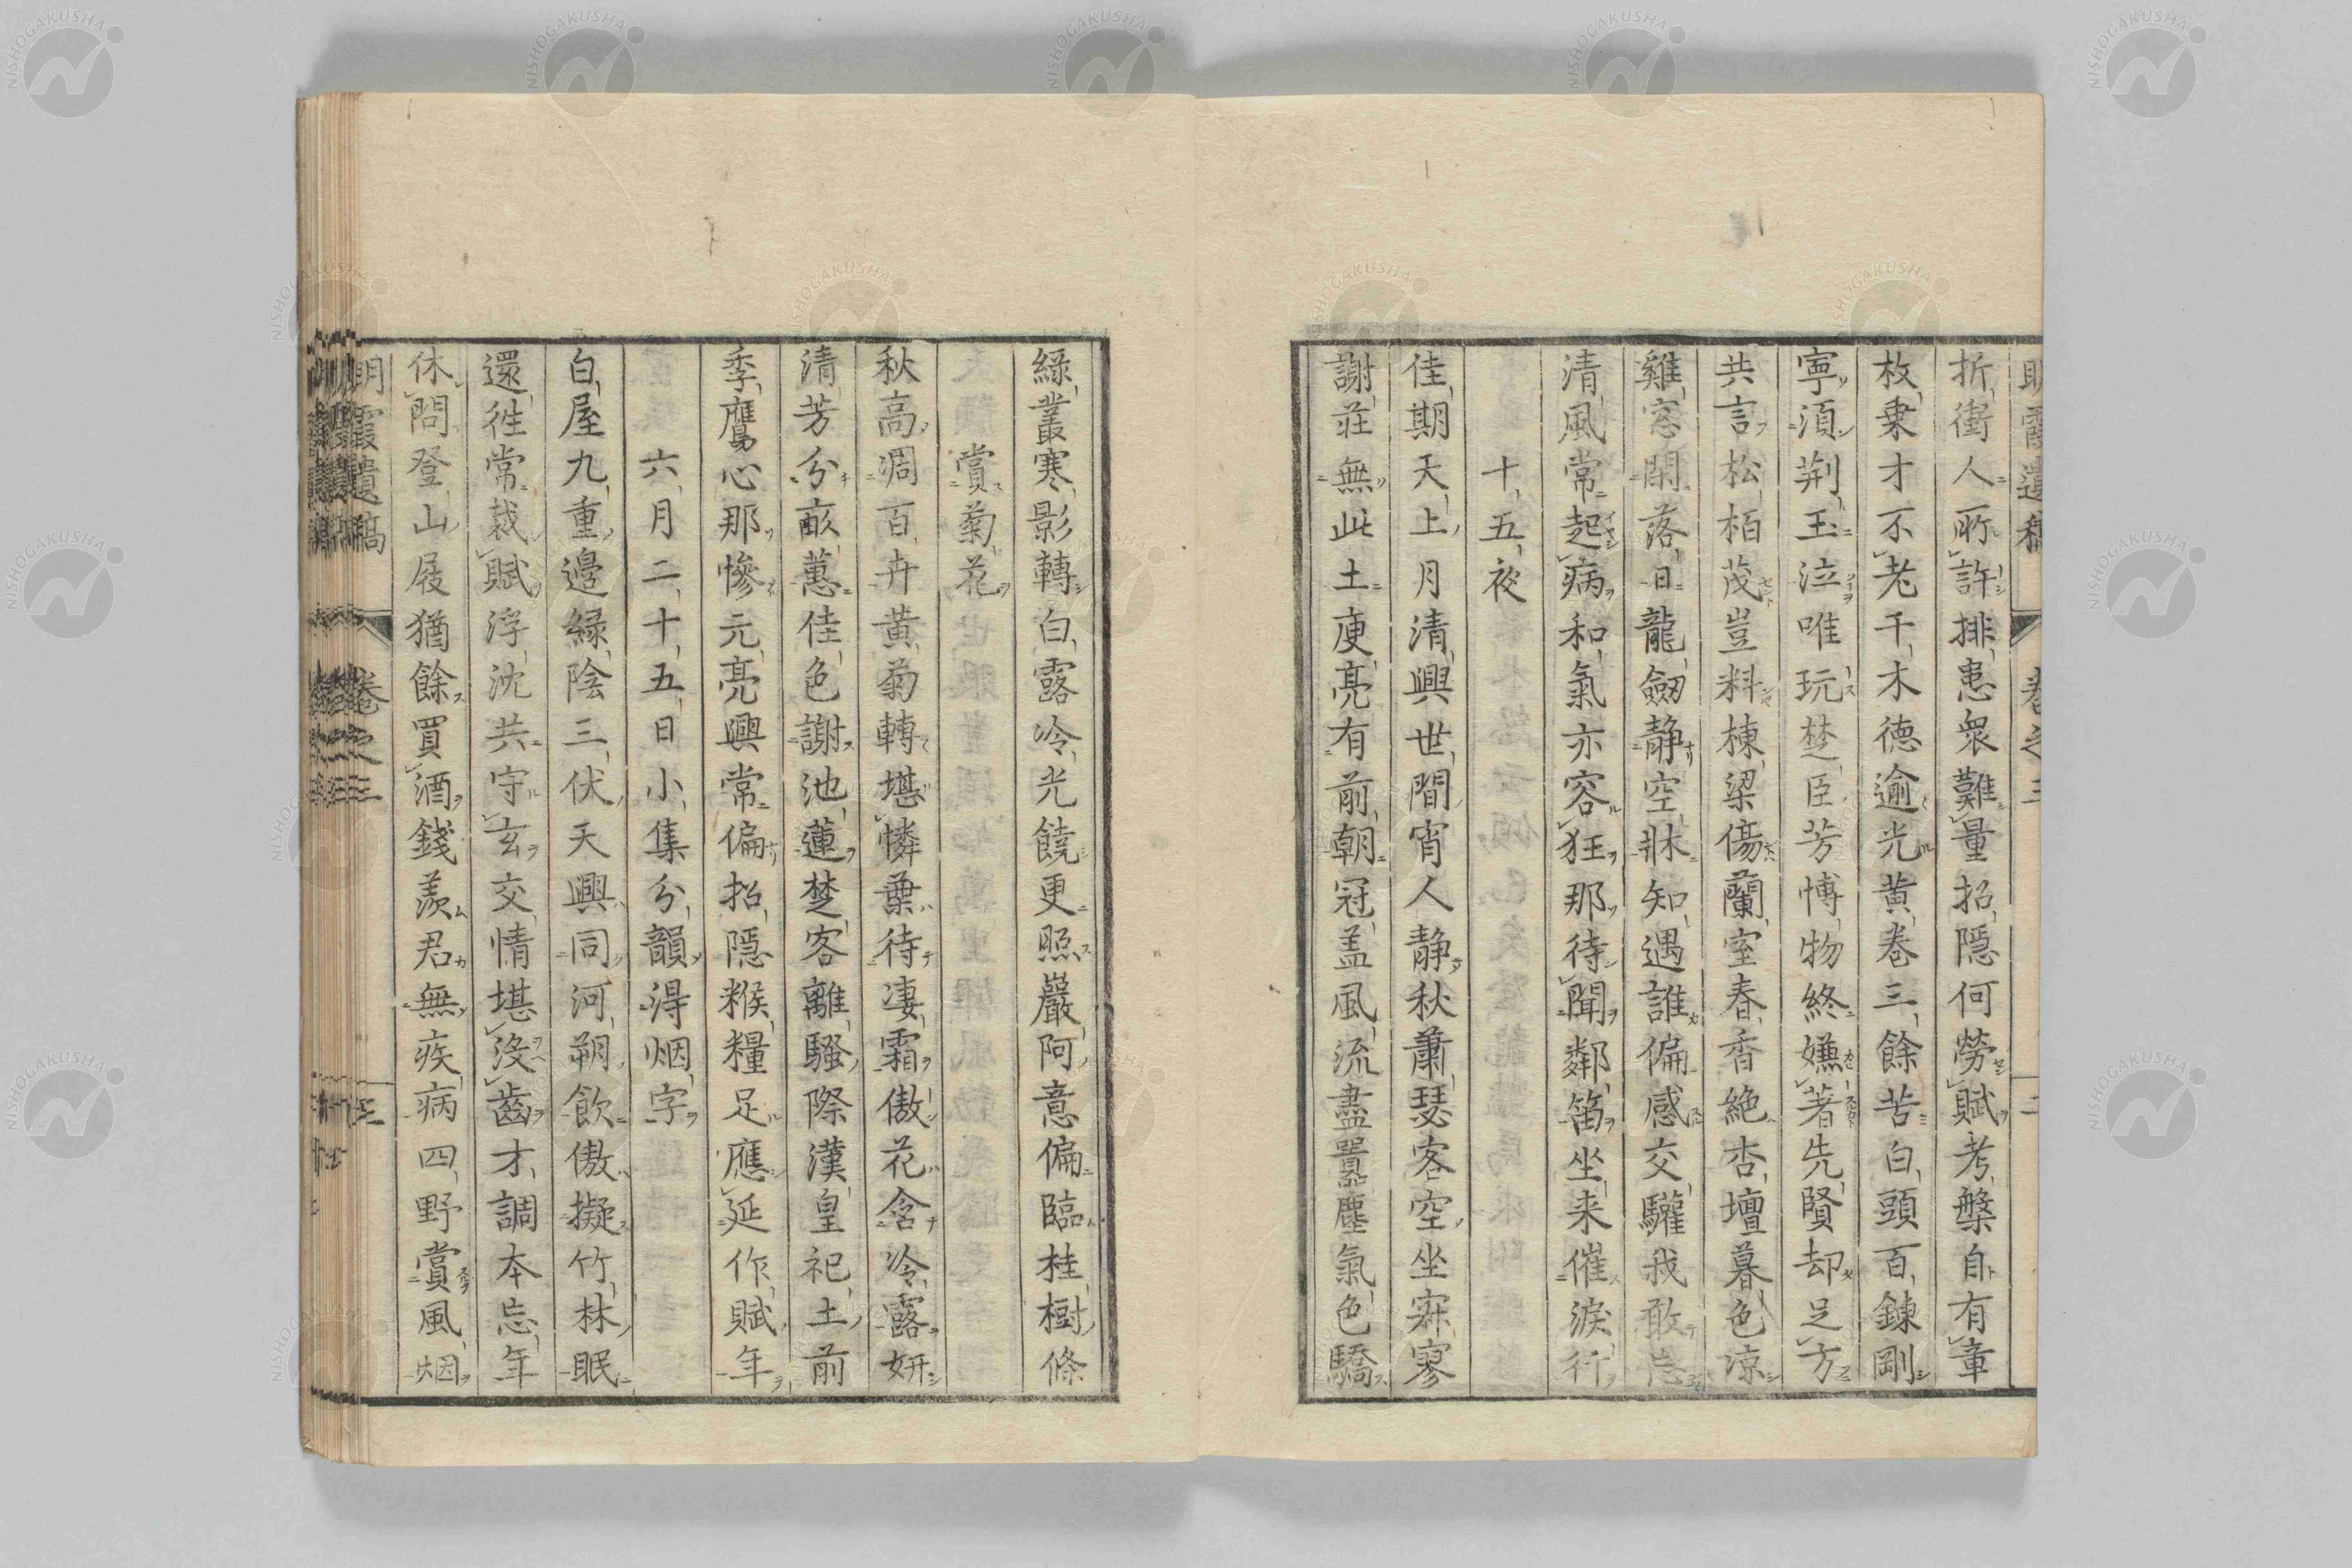 折衝人所許排患衆難量招隱何勞賦考槃自有章
枚乗才不老千木德逾光黄巻三餘苦白頭百鍊剛
寧須荆玉泣唯玩楚臣芳博物終嫌著先賢却足方
共言松栢茂豈料棟梁傷蘭室春香絶杏壇暮色凉
雞窓閑落日龍劔静空牀知遇誰偏感交驩我敢忘
清風常起病和氣亦容狂那待聞鄰笛坐来催淚行
十五夜
佳期天上月清興世間宵人静秋蕭瑟客空坐寂寥
謝荘無此土庾亮有前朝冠盖風流盡囂塵氣色驕
緑叢寒影轉白露冷光饒更照巖阿意偏臨桂樹條
賞菊花
秋高凋百卉黄菊轉堪憐葉待凄霜傲花含冷露妍
清芳分畝蕙佳色謝池蓮楚客離騒際漢皇祀土前
季鷹心那慘元亮興常偏招隱糇糧足應延作賦年
六月二十五日小集分韻得烟字
白屋九重邊緑陰三伏天興同河朔飲傲擬竹林眠
還徃常裁賦浮沈共守玄交情堪没齒才調本忘年
休問登山屐猶餘買酒錢羨君無疾病四野賞風烟
明霞遺稿 巻之三 三